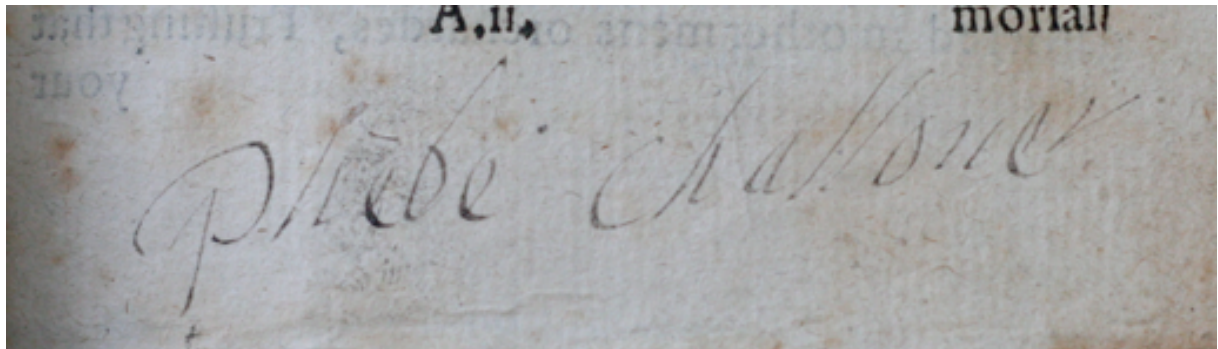 A.ii. moriall
your
Phebe Challoner